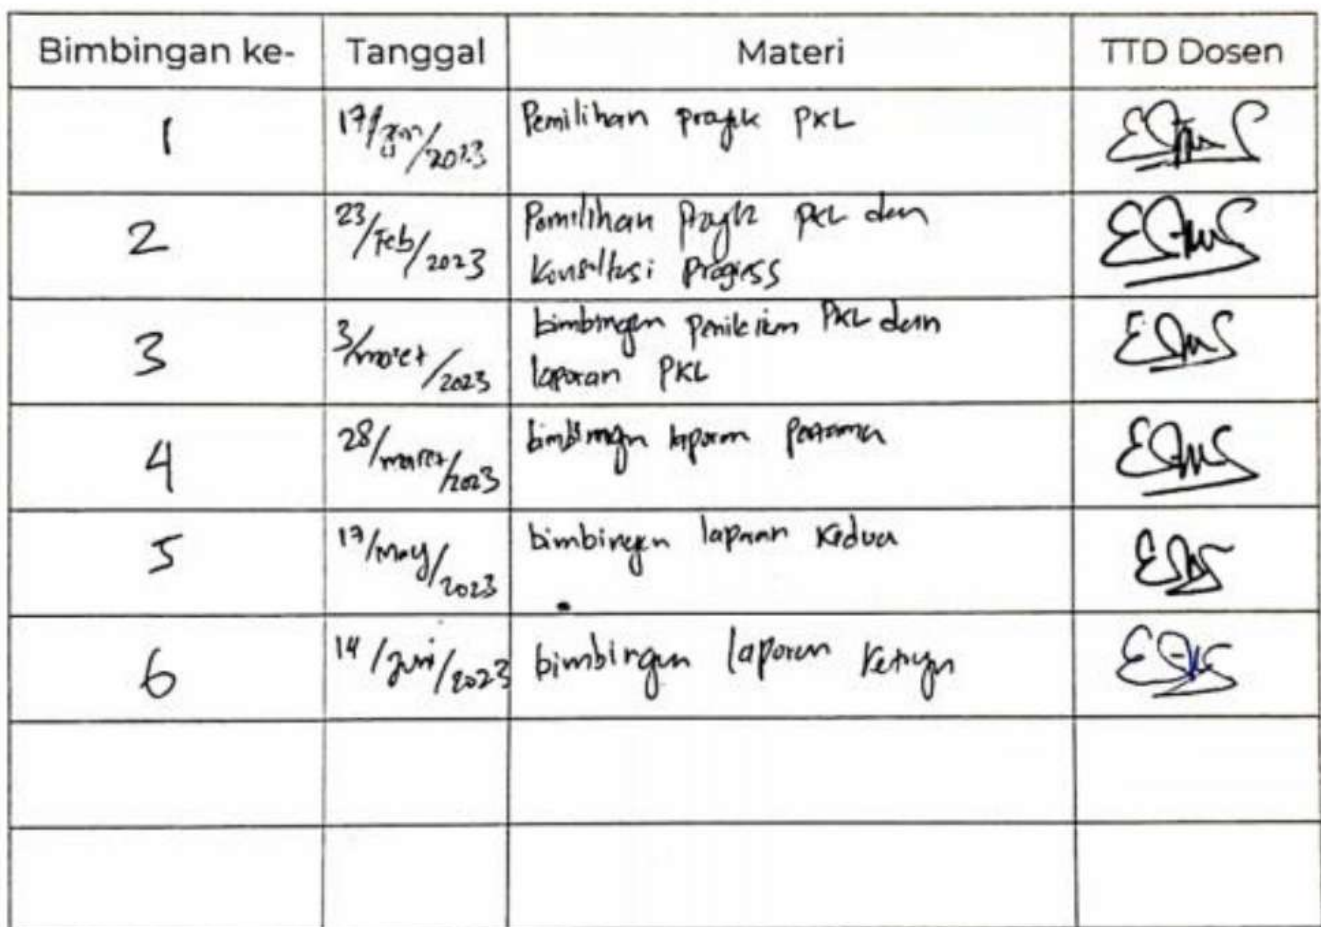 Bimbingan ke- Tanggal Materi TTD Dosen
1 17/Jan/2023 Pemilihan proyek PKL
2 23/Feb/2023 Pemilihan proyek PKL dan
Konsultasi Progress
3 3/maret/2023 bimbingan penilaian PKL dan
laporan PKL
4 28/maret/2023 bimbingan laporan pertama
5 17/may/2023 bimbingan laporan kedua
6 14/Juni/2023 bimbingan laporan Ketiga